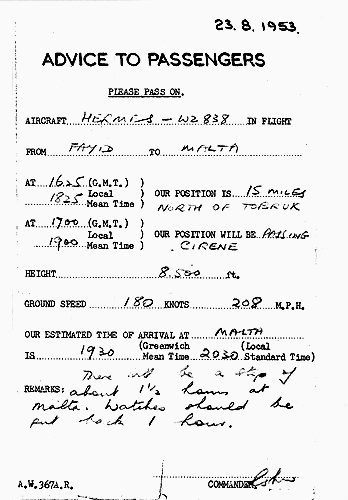 23.8.1953.
ADVICE TO PASSENGERS
PLEASE PASS ON.
AIRCRAFT HERMES - WZ 838 IN FLIGHT
FROM FAYID TO MALTA
AT 1625 (G.M.T.) )
1825 Local ) OUR POSITION IS 15 MILES
Mean Time ) NORTH OF TOBRUK
AT 1700 (G.M.T.) )
Local ) OUR POSITION WILL BE PASSING
1900 Mean Time ) CIRENE
HEIGHT 8.500 ft.
GROUND SPEED 180 KNOTS 208 M.P.H.
OUR ESTIMATED TIME OF ARRIVAL AT MALTA
(Greenwich (Local
IS 1930 Mean Time 2030 Standard Time)
There will be a stop of
REMARKS: about 1½ hours at
Malta. Watches should be
put back 1 hour.
A.W.367A.R. COMMANDER